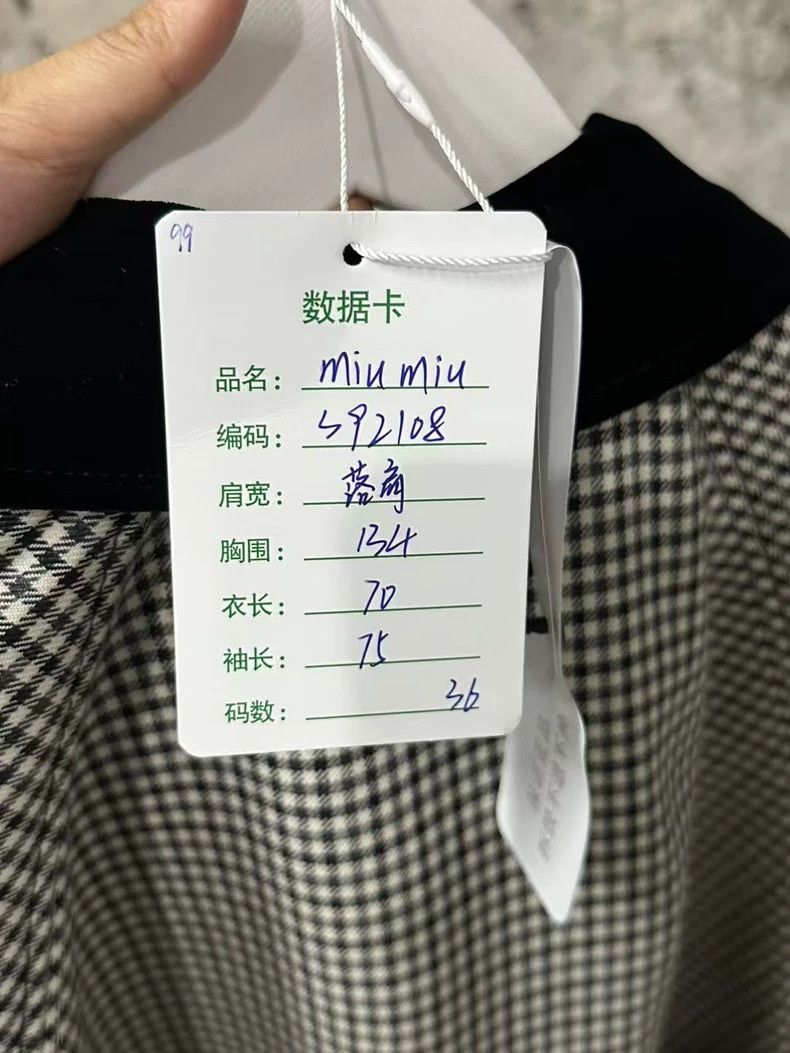 99
数据卡
品名： miu miu
编码： S92108
肩宽： 落肩
胸围： 134
衣长： 70
袖长： 75
码数： 36